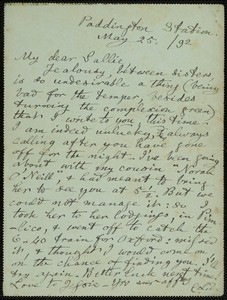 Paddington Station.
May 25. /92
My dear Sallie,
Jealousy, between sisters,
is so undesirable a thing (being
bad for the temper, besides
turning the complexion green)
that I write to you, this time.
I am indeed unlucky, I always
calling after you have gone
off for the night. I've been going
about with my cousin "Norah
O'Neill", & had meant to bring
her to see you at 5½. But we
could not manage it: so I
took her to her lodgings, in Pim-
lico, & went off to catch the
train for Oxford; missed
it; & thought I would come on
on the chance of finding you. I'll
try again. Better luck next time.
Love to Josie. Yrs ever affly
C.L.D.